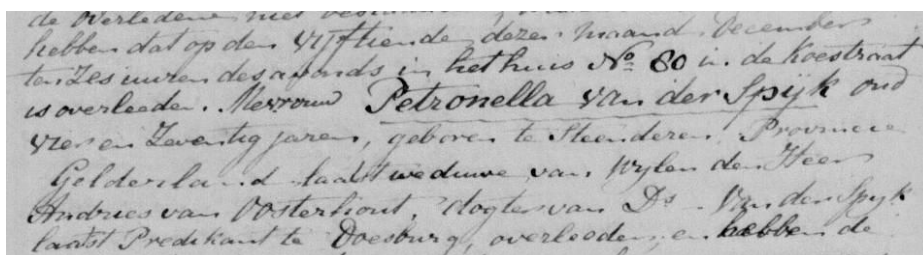 de overledene niet
hebben dat op den vyftiende dezer maand December
ten Zes uuren des avonds in het huis No 80 in de Koestraat
is overleeden. Mevrouw Petronella van der Spijk oud
vier en Zeventig jaren, geboren te Steenderen Provincie
Gelderland laatst weduwe van Wylen den Heer
Andries van Oosterhout, dogter van Ds Van der Spyk
laatst Predikant te Doesburg, overleeden, en hebben de